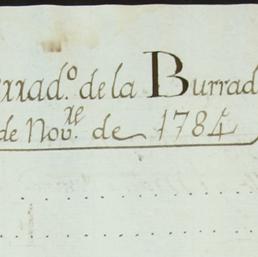 rrad.º de la Burrad
de Nov.re de 1784